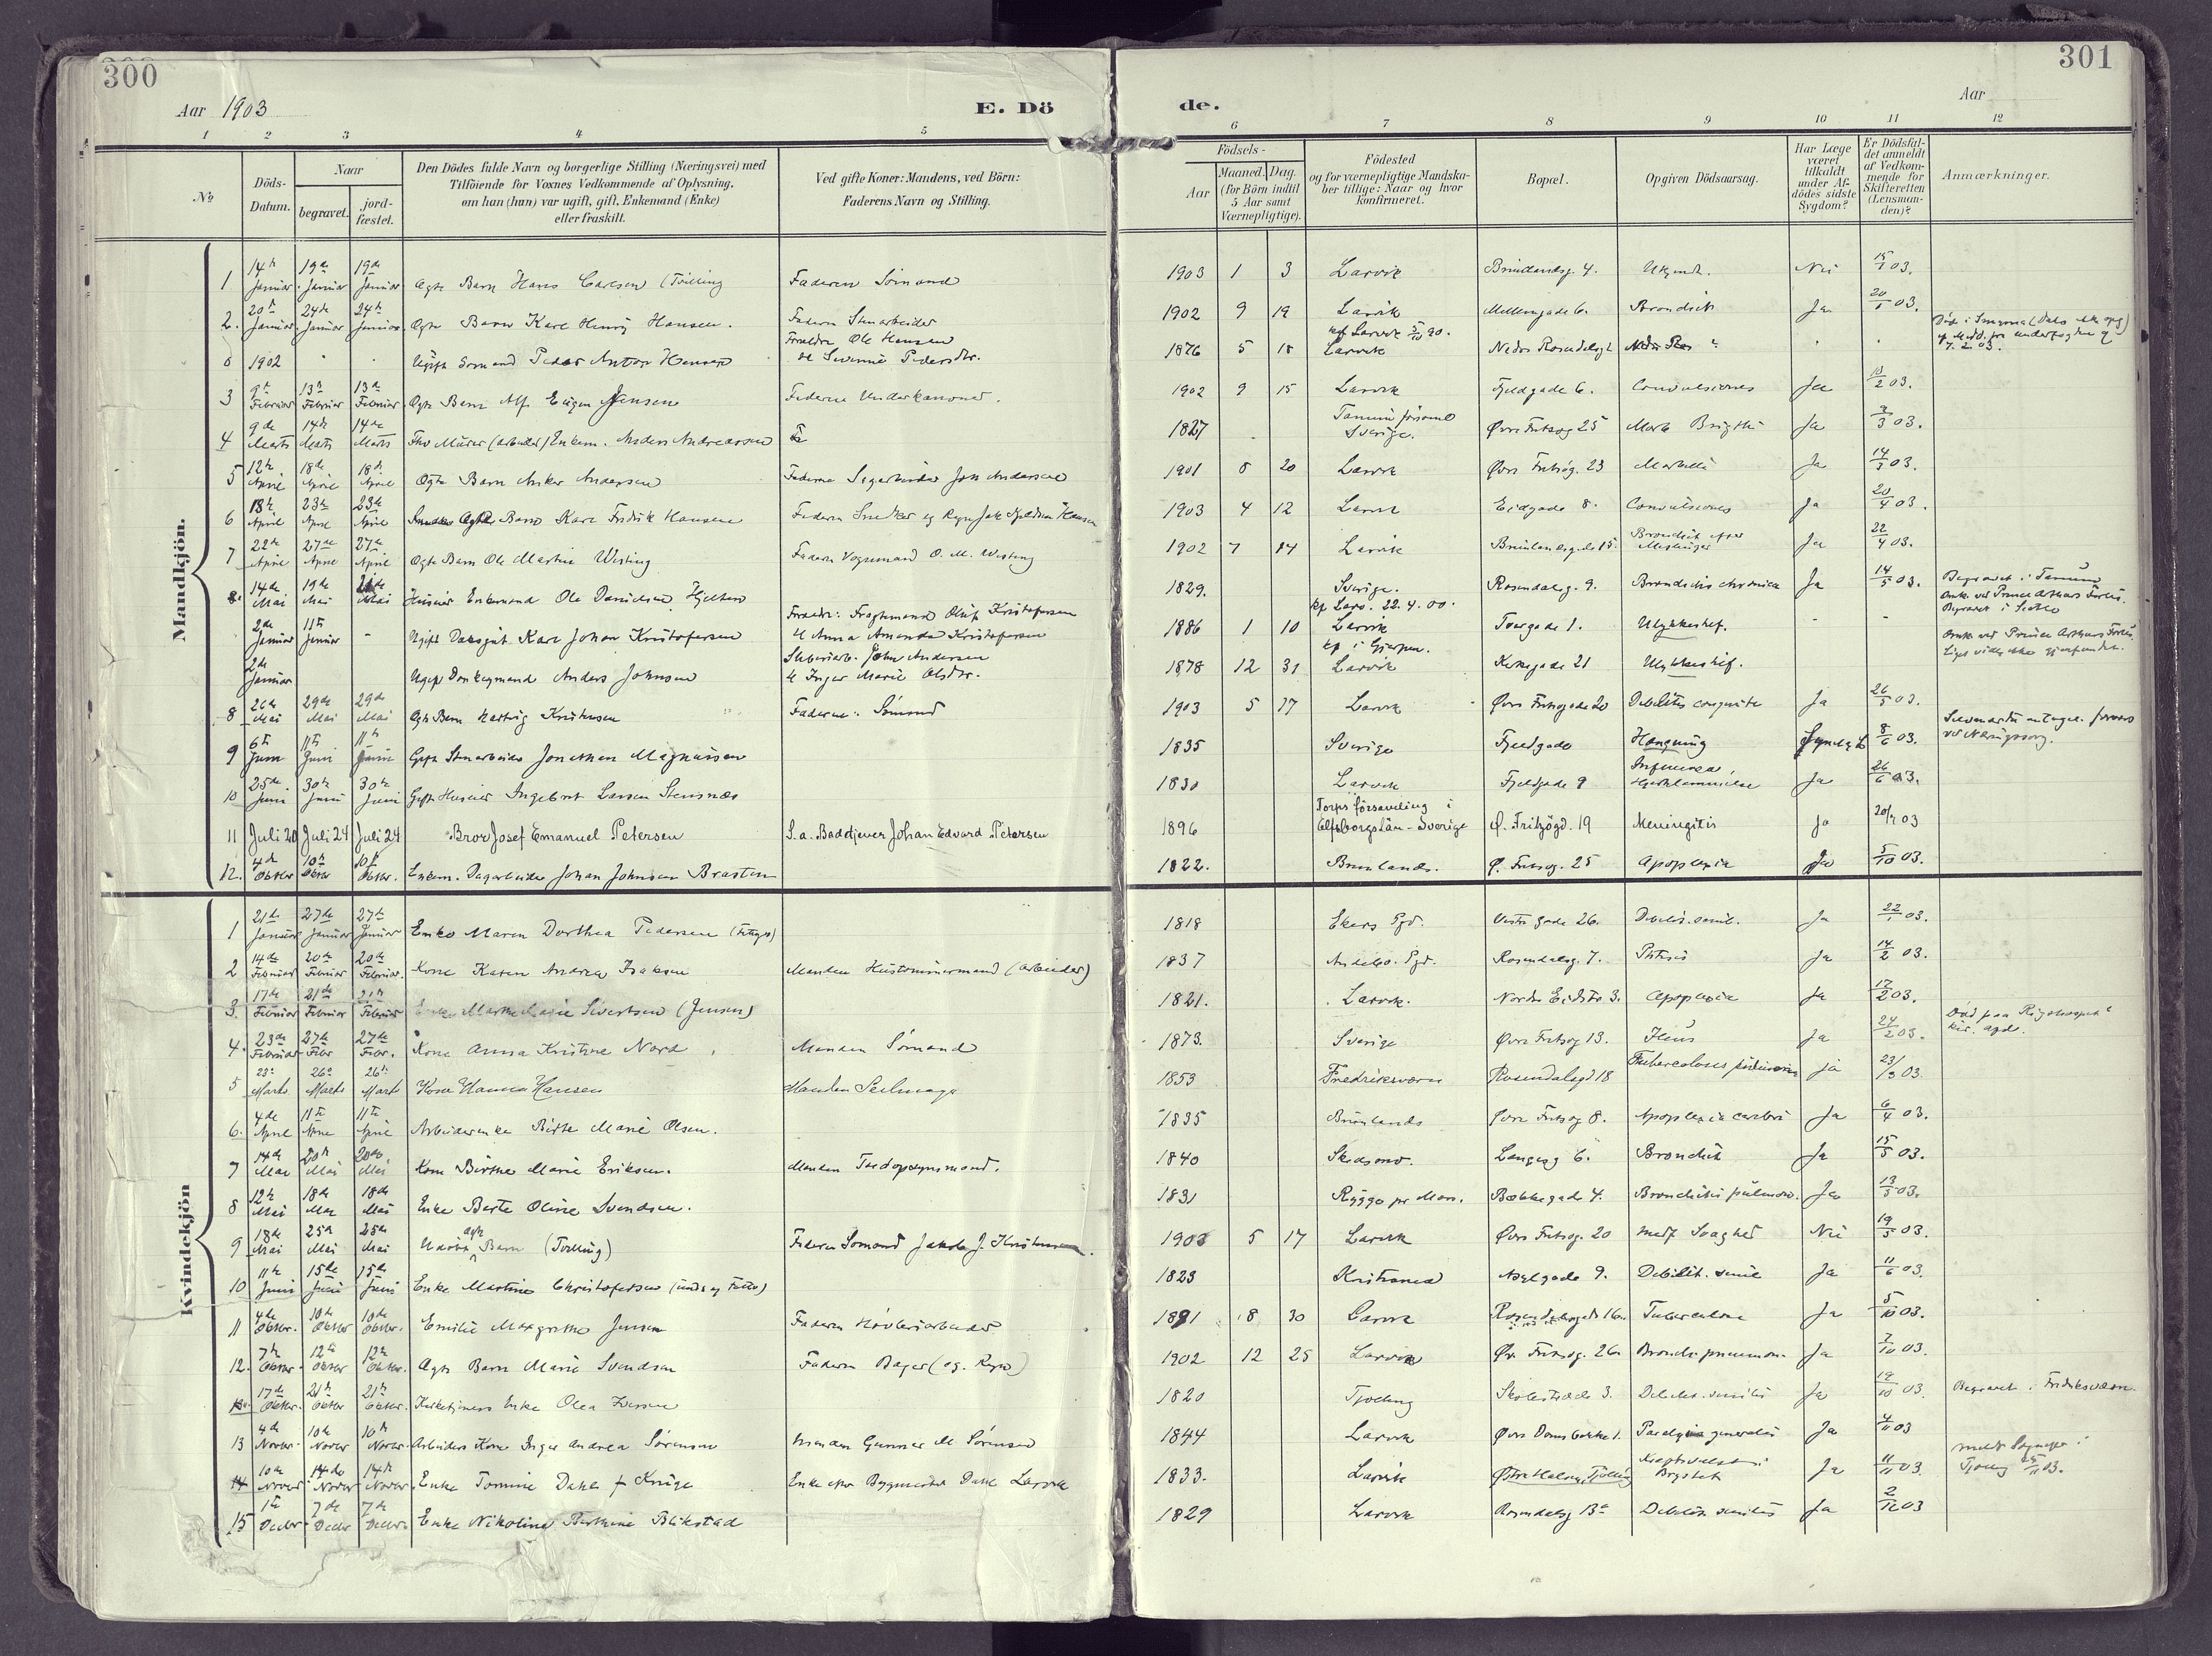 300
Aar 1903
E. Dö
1 2 3 4 5
No
Döds-Datum.
Naar
begravet.
jord-fæstet.
Den Dödes fulde Navn og borgerlige Stilling (Næringsvei) med
Tilföiende for Voxnes Vedkommende af Oplysning,
om han (hun) var ugift, gift, Enkemand (Enke)
eller fraskilt.
Ved gifte Koner: Mandens, ved Börn:
Faderens Navn og Stilling.
Mandkjön.
1 14de Januar 19de Januar 19de Januar Ægte Barn Hans Carlsen (Tvilling Faderen Sømand
2. 20de Januar 24de Januar 24de Januar Ægte Barn Karl Henry Hansen. Faderen Stenarbeider
0 1902 Ugift Sømand Peder Anton Hansen Forældre Ole Hansen
3 9de Februar 13de Februar 13de Februar Ægte Barn Alf Eugen Jensen Faderen
4 9de Marts 14de Marts 14de Marts Enkem. Anders Andreassen
5 12te April 18de April 18de April Ægte Barn Anker Andersen Faderen Jon Andersen
6 18de April 23de April 23de April Ægte Barn Karl Fredrik Hansen Faderen
7 22de April 27de April 27de April Ægte Barn Ole Martin Wisting Faderen Vognmand O. M. Wisting
8. 14de Mai 19de Mai Mai Husier Enkemand Ole Danielsen
2de Januar 11te Januar - Ugift Karl Johan Kristofersen Forældre: Fragtmand Oluf Kristofersen
& Anna Amanda Kristofersen
2de Januar Ugift Donkeymand Anders Johnsen John Andersen
& Inger Marie Olsdtr.
8 26de Mai 29de Mai 29de Mai Ægte Barn Hartvig Kristensen Faderen: Sømand
9 6te Juni 11te Juni 11te Juni Gift Stenarbeider Jonathan Magnussen
10 25de Juni 30te Juni 30te Juni Gift Husier Ingebret Larsen Stensnæs
11 Juli 20 Juli 24 Juli 24 Bror Josef Emanuel Petersen S. a. Badetjener Johan Edvard Petersen
12. 4de Oktbr 10de Oktbr 10de Oktbr. Enkem. Dagarbeider Johan Johnsen Braaten
Kvindekjön
1 21de Januar 27de Januar 27de Januar Enke Maren Dorthea Pedersen
2 14de Februar 20de Februar 20de Februar. Kone Karen Andrea Isaksen Manden Hustømmermand (arbeider)
3. 17de Februar 21de Februar 21de Februar Enke Sivertsen (Jensen)
4. 23de Februar 27de Febr 27de Febr. Kone Anna Kristine Nord Manden Sømand
5 23de Marts 26de Marts 26de Marts Kone Hanna Hansen Manden Seilmager
6. 4de April 11te April 11te April Arbeiderenke Birte Marie Olsen.
7 14de Mai 20de Mai 20de Mai Kone Birthe Marie Eriksen. Manden
8 12te Mai 18de Mai 18de Mai Enke Berte Oline Svendsen.
9 18de Mai 25de Mai 25de Mai Udøbt ægte Barn (Tvilling) Faderen Sømand Jakob J. Kristensen.
10 11te Juni 15de Juni 15de Juni Enke Martine Christofersen
11 4de Oktbr. 10de Oktbr 10de Oktbr. Emilie Margrethe Jensen Faderen Høvleriarbeider
12. 7de Oktbr. 12te Oktbr 12te Oktbr. Ægte Barn Marie Svendsen Faderen Bager
17de Oktbr. 21de Oktbr 21de Oktbr. Kirketjeners Enke Olea Iversen
13 4de Novbr. 10de Novbr 10de Novbr. Arbeiders Kone Inger Andrea Sørensen Manden Gunner M Sørensen
14 10de Novbr 14de Novbr 14de Novbr. Enke Tomine Dahl f Krüge Enke efter Bygmester Dahl Larvik
15 1te Decbr 7de Decbr 7de Decbr. Enke Nikoline Berthine Blikstad
301
Aar
de.
6 7 8 9 10 11 12
Födsels-
Aar
Maaned. Dag.
(for Börn indtil
5 Aar samt
Værnepligtige).
Födested
og for værnepligtige Mandska-
ber tillige: Naar og hvor
konfirmeret.
Bopæl.
Opgiven Dödsaarsag.
Har Læge
været
tilkaldt
under Af-
dödes sidste
Sygdom?
Er Dödsfal-
det anmeldt
af Vedkom-
mende for
Skifteretten
(Lensman-
den)?
Anmærkninger.
1903 1 3 Larvik Brunlandsg. 4. Ukjendt. Nei 15/1 03.
1902 9 19 Larvik Mellemgade 6. Bronchit Ja 20/1 03.
kf Larvik 5/10 90.
1876 5 18 Larvik Nedre Rosendalsgt
1902 9 15 Larvik Fjeldgade 6. Convulsiones Ja 10/2 03.
1827 Sverige. Øvre Fritzøg 25 Morb. Brigthi Ja 9/3 03.
1901 8 20 Larvik Øvre Fritzøg. 23 Morbilli Ja 14/4 03.
1903 4 12 Larvik Eidgade 8. Convulsiones Ja 20/4 03.
1902 7 14 Larvik Brunlandsgade 15. Bronchit efter Meslinger Ja 22/4 03.
1829. Sverige. Rosendalsg. 9. Bronchitis chronica Ja 14/5 03. Begravet i Tanum
kf Larv. 22.4.00.
1886 1 10 Larvik Torvgade 1. Ulykkestilf. - - Omk. ved Prince Arthurs Forlis. Begravet i
kf i Gjerpen.
1878 12 31 Larvik Kirkegade 21 Ulykkestilf. Omk ved Prince Arthurs Forlis. Liget ikke gjenfundet.
1903 5 17 Larvik Øvre Fritzøgade 20 Debilitas congenita Ja 26/5 03.
1835 Sverige Fjeldgade Hængning 8/6 03.
1830 Larvik Fjeldgade 9 Influenza Hjertelammelse Ja 26/6 03.
1896 Torps församling i Elfsborgslän - Sverige Ø. Fritzögd. 19 Meningitis Ja 20/7 03
1822. Brunlands. Ø. Fritzøg. 25 Apoplexia Ja 5/10 03.
1818 Ekers Pgd. Vestre Gade 26. Debilit. senil. Ja 22/1 03.
1837 Andebo. Pgd. Rosendalsg. 7. Phtisis Ja 14/2 03.
1821. Larvik. Nordre Eidstr 3. Apoplexia Ja 17/2 03.
1873. Sverige Øvre Fritzøg 13. Ileus Ja 24/2 03. Død paa Rigshospit kir. afd.
1853 Fredriksværn Rosendalsgd 18 Tuberculosis pulmonum ja 23/3 03
1835 Brunlands Øvre Fritzøg 8. Apoplexia cerebri Ja 6/4 03.
1840 Skedsmo. Langesg 6. Bronchit Ja 15/5 03.
1831 Rygge pr Moss. Bækkegade 4. Bronchitis pulmon. Ja 13/5 03.
1903 5 17 Larvik Øvre Fritzøg. 20 medf Svaghed Nei 19/5 03.
1823 Kristiania Asylgade 9. Debilit. senil Ja 11/6 03.
1891 8 30 Larvik Rosendalsgade 16. Tuberculose Ja 5/10 03.
1902 12 25 Larvik Øv. Fritzøg. 26. Bronch. pneumon. Ja 7/10 03.
1820 Tjodling Skolestræde 3. Debilit. senilis Ja 19/10 03. Begravet i Fredriksværn.
1844 Larvik Øvre Damsbakke 1. Paralysia generalis Ja 4/11 03
1833. Larvik Østre Halsen, Tjølling Kræftsvulst i Brystet Ja 11/11 03. meldt Sognepr. i Tjølling /11 03.
1829 Larvik Rosendalsg 13a Debilitas senilis Ja 2/12 03